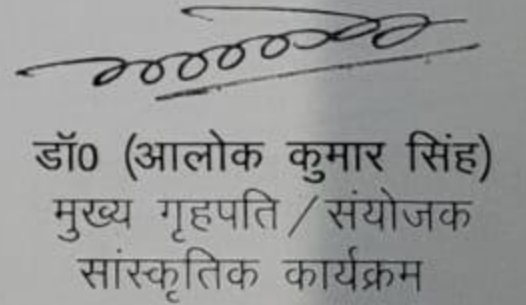 डॉ0 (आलोक कुमार सिंह)
मुख्य गृहपति / संयोजक
सांस्कृतिक कार्यक्रम